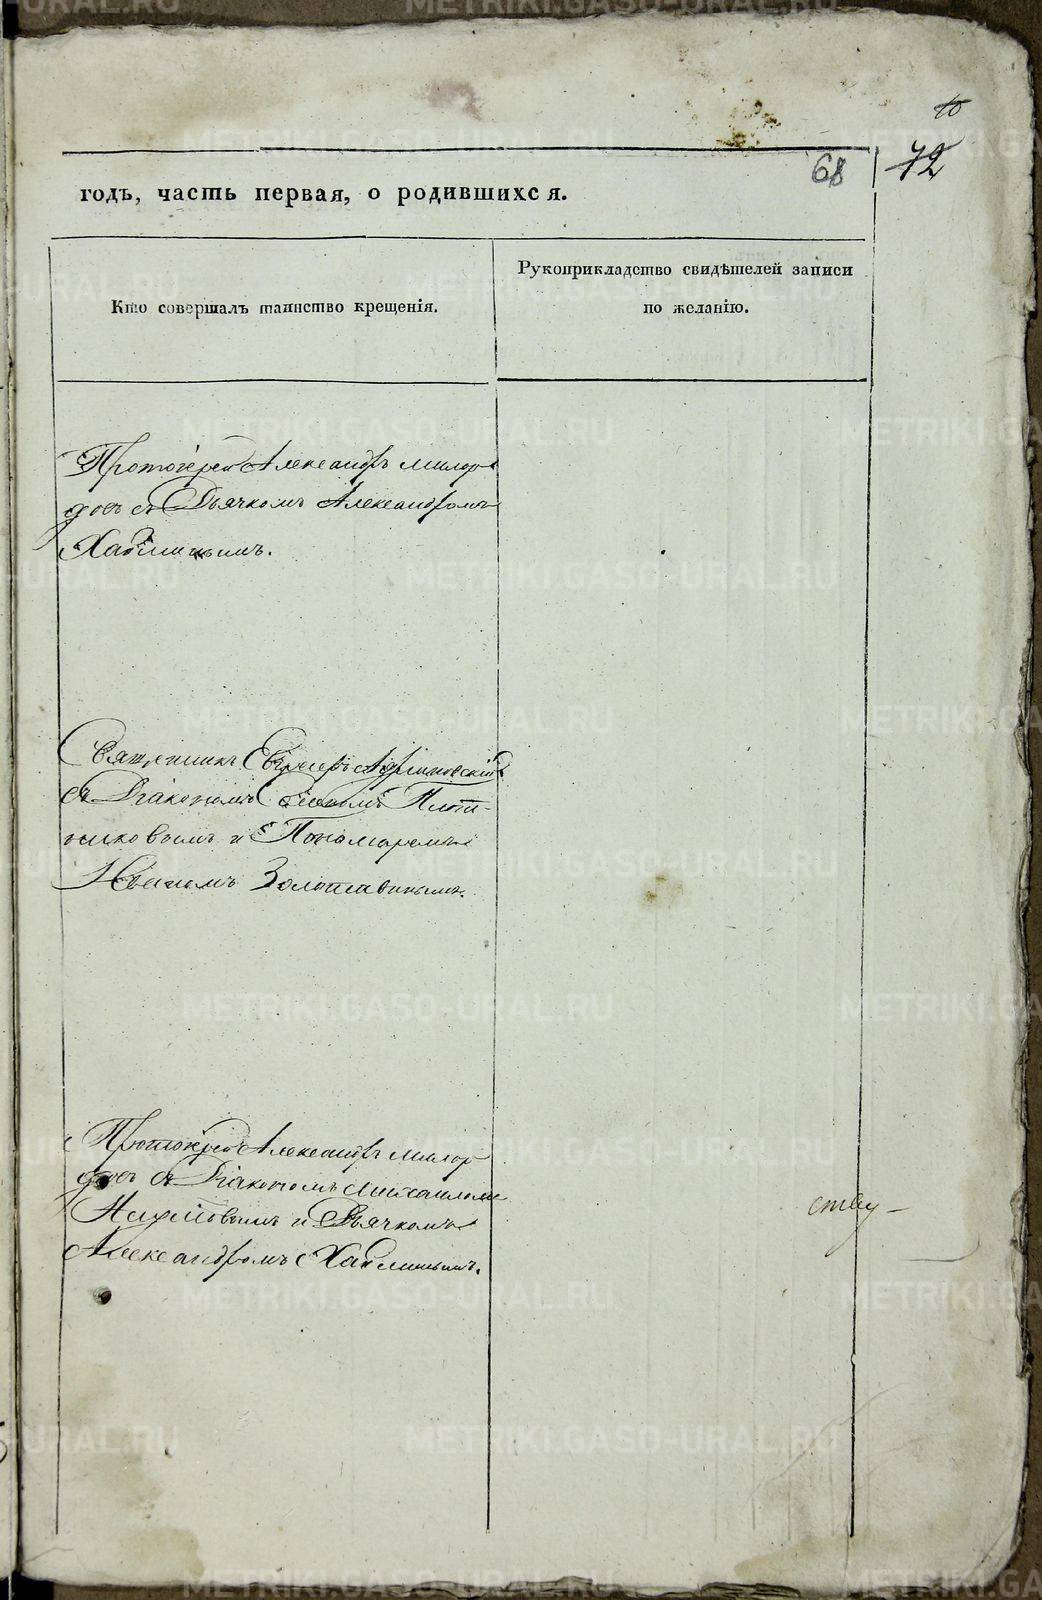 10
68 72
годъ, часть первая, о родившихся.
Кто совершалъ таинство крещенія.
Рукоприкладство свидѣтелей записи
по желанію.
Протоіерей Александръ Милор-
довъ съ Дьячкомъ Александромъ
Хаблинымъ.
Священникъ
съ Діакономъ Плот-
никовымъ и Пономаремъ
Иваномъ Золотавинымъ.
Протоіерей Александръ Милор
довъ съ Діакономъ Михаиломъ
Наумовымъ и Дьячкомъ
Александромъ Хаблинымъ.
ству -
METRIKI.GASO-URAL.RU